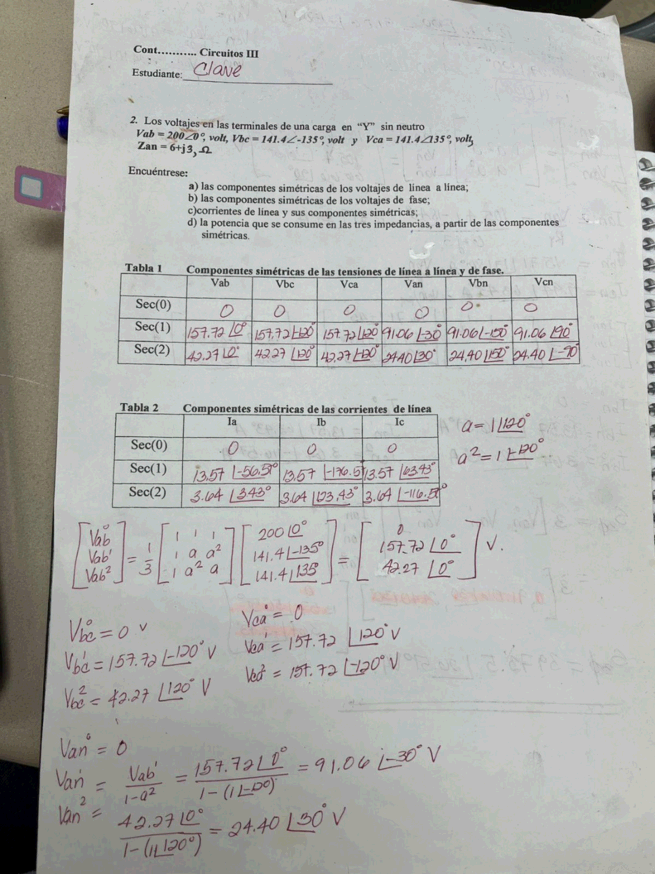 Cont........... Circuitos III
Estudiante: Clave
2. Los voltajes en las terminales de una carga en “Y” sin neutro
Vab = 200∠0°, volt, Vbc = 141.4∠-135°, volt y Vca = 141.4∠135°, volt,
Zan = 6+j3, Ω
Encuéntrese:
a) las componentes simétricas de los voltajes de linea a línea;
b) las componentes simétricas de los voltajes de fase;
c)corrientes de línea y sus componentes simétricas;
d) la potencia que se consume en las tres impedancias, a partir de las componentes
simétricas.
Tabla 1 Componentes simétricas de las tensiones de línea a línea y de fase.
Vab Vbc Vca Van Vbn Vcn
Sec(0) 0 0 0 0 0 0
Sec(1) 157.72∠0° 157.72∠-120° 157.72∠120° 91.06∠-30° 91.06∠-150° 91.06∠90°
Sec(2) 42.27∠0° 42.27∠120° 42.27∠-120° 24.40∠30° 24.40∠150° 24.40∠-90°
Tabla 2 Componentes simétricas de las corrientes de línea
Ia Ib Ic
Sec(0) 0 0 0
Sec(1) 13.57∠-56.57° 13.57∠-176.5° 13.57∠63.43°
Sec(2) 3.64∠3.43° 3.64∠123.43° 3.64∠-116.57°
a = 1∠120°
a² = 1∠-120°
[Vab° Vab¹ Vab²] = 1/3 [1 1 1; 1 a a²; 1 a² a] [200∠0° 141.4∠-135° 141.4∠135°] = [0 157.72∠0° 42.27∠0°] V.
Vbc° = 0 V
Vbc¹ = 157.72∠-120° V
Vbc² = 42.27∠120° V
Vca° = 0
Vca¹ = 157.72∠120° V
Vca² = 157.72∠-120° V
Van° = 0
Van¹ = Vab¹/1-a² = 157.72∠0°/1-(1∠-120°) = 91.06∠-30° V
Van² = 42.27∠0°/1-(1∠120°) = 24.40∠30° V